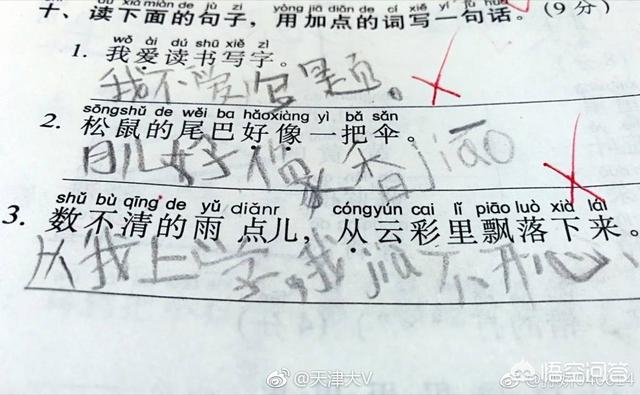 十、读下面的句子，用加点的词写一句话。(9 分)
wǒ ài dú shū xiě zì
1. 我爱读书写字。
我不爱写题。
sōngshǔ de wěi ba hǎoxiàng yì bǎ sǎn
2. 松鼠的尾巴好像一把伞。
月儿好像香jiāo
shǔ bù qīng de yǔ diǎnr cóngyún cai lǐ piāo luò xià lái
3. 数不清的雨点儿，从云彩里飘落下来。
从我上学,我jiù不开心
@天津大V
悟空问答